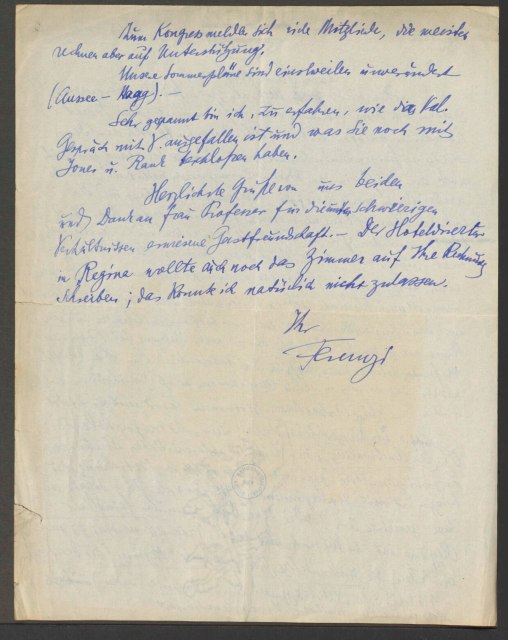 Zum Kongress melden sich viele Mitglieder, die meisten
rechnen aber auf Unterstützung.
Unsere Sommerpläne sind einstweilen unverändert
(Aussee – Haag). –
Sehr gespannt bin ich, zu erfahren, wie das
Gespräch mit V. ausgefallen ist und was Sie noch mit
Jones u. Rank beschlossen haben.
Herzlichste Grüße von uns beiden
und Dank an Frau Professor für die unter schwierigen
Verhältnissen erwiesene Gastfreundschaft. – Der Hoteldirektor
im Regina wollte auch noch das Zimmer auf Ihre Rechnung
schreiben; das konnte ich natürlich nicht zulassen.
Ihr
Ferenczi